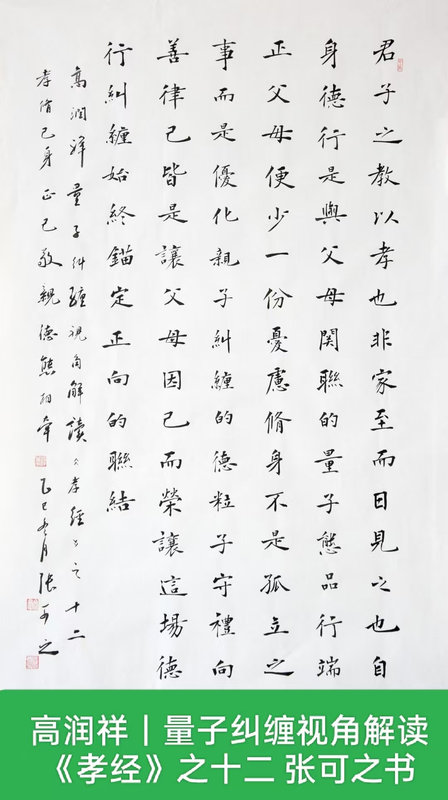 君子之教以孝也非家至而日見之也自
身德行是與父母関聯的量子態品行端
正父母便少一份憂慮脩身不是孤立之
事而是優化親子糾纏的德粒子守禮向
善律己皆是讓父母因己而榮讓這場德
行糾纏始終錨定正向的聯結
高润祥量子纠纏視角解讀《孝經》之十二
孝脩己身正己敬親德態相牽 乙巳 張可之
高润祥丨量子纠缠视角解读
《孝经》之十二 张可之书